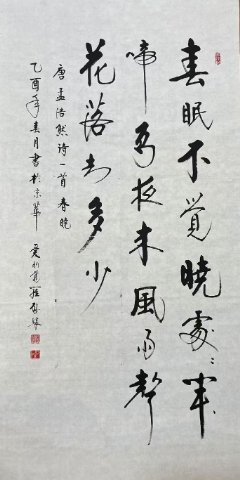 春眠不覺曉處々聞
啼鳥夜来風雨聲
花落知多少
唐孟浩然詩一首春曉
乙酉年春月書於京華愛新覺羅